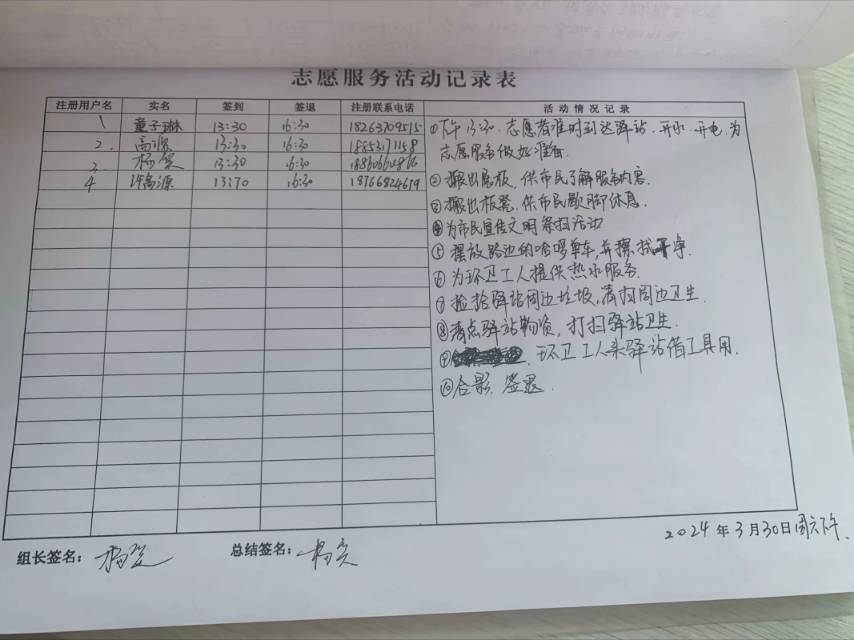 志愿服务活动记录表
注册用户名 实名 签到 签退 注册联系电话 活动情况记录
1 童子琳 13:30 16:30 18263709515
2. 高源 13:30 16:30
3 杨 13:30 16:30
4 许高源 13:30 16:30 18766824619
①下午13:30.志愿者准时到达驿站.开水.开电,为
志愿服务做好准备.
②搬出展板,供市民了解服务内容.
③搬出板凳.供市民歇脚休息.
④为市民宣传文明祭扫活动
⑤摆放路边的哈啰单车,并擦拭干净.
⑥为环卫工人提供热水服务.
⑦捡拾驿站周边垃圾,清扫周边卫生.
⑧清点驿站物资,打扫驿站卫生.
⑨环卫工人来驿站借工具用.
⑩合影.签退.
2024年3月30日周六下午.
组长签名: 杨
总结签名: 杨